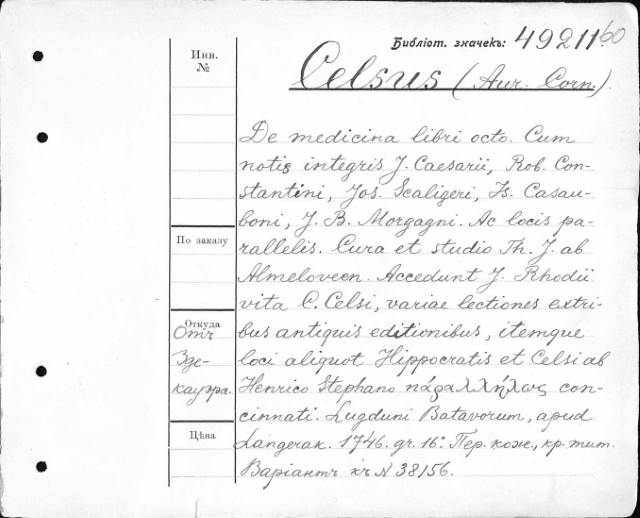 Библіот. значекъ: 49211 60
Инв. №
Celsus (Aur. Corn.)
De medicina libri octo. Cum
notis integris J. Caesarii, Rob. Con-
stantini, Jos. Scaligeri, Is. Casau-
boni, J. B. Morgagni. Ac locis pa-
По заказу
rallelis. Cura et studio Th. J. ab
Almeloveen. Accedunt J. Rhodii
vita C. Celsi, variae lectiones extri-
Откуда
Отъ
Зде-
кауэра.
bus antiquis editionibus, itemque
loci aliquot Hippocratis et Celsi ab
Henrico Stephano παραλλήλως con-
cinnati. Lugduni Batavorum, apud
Цѣна
Langerak. 1746. gr. 16º. Пер. коже, кр. тит.
Варіантъ къ N 38156.